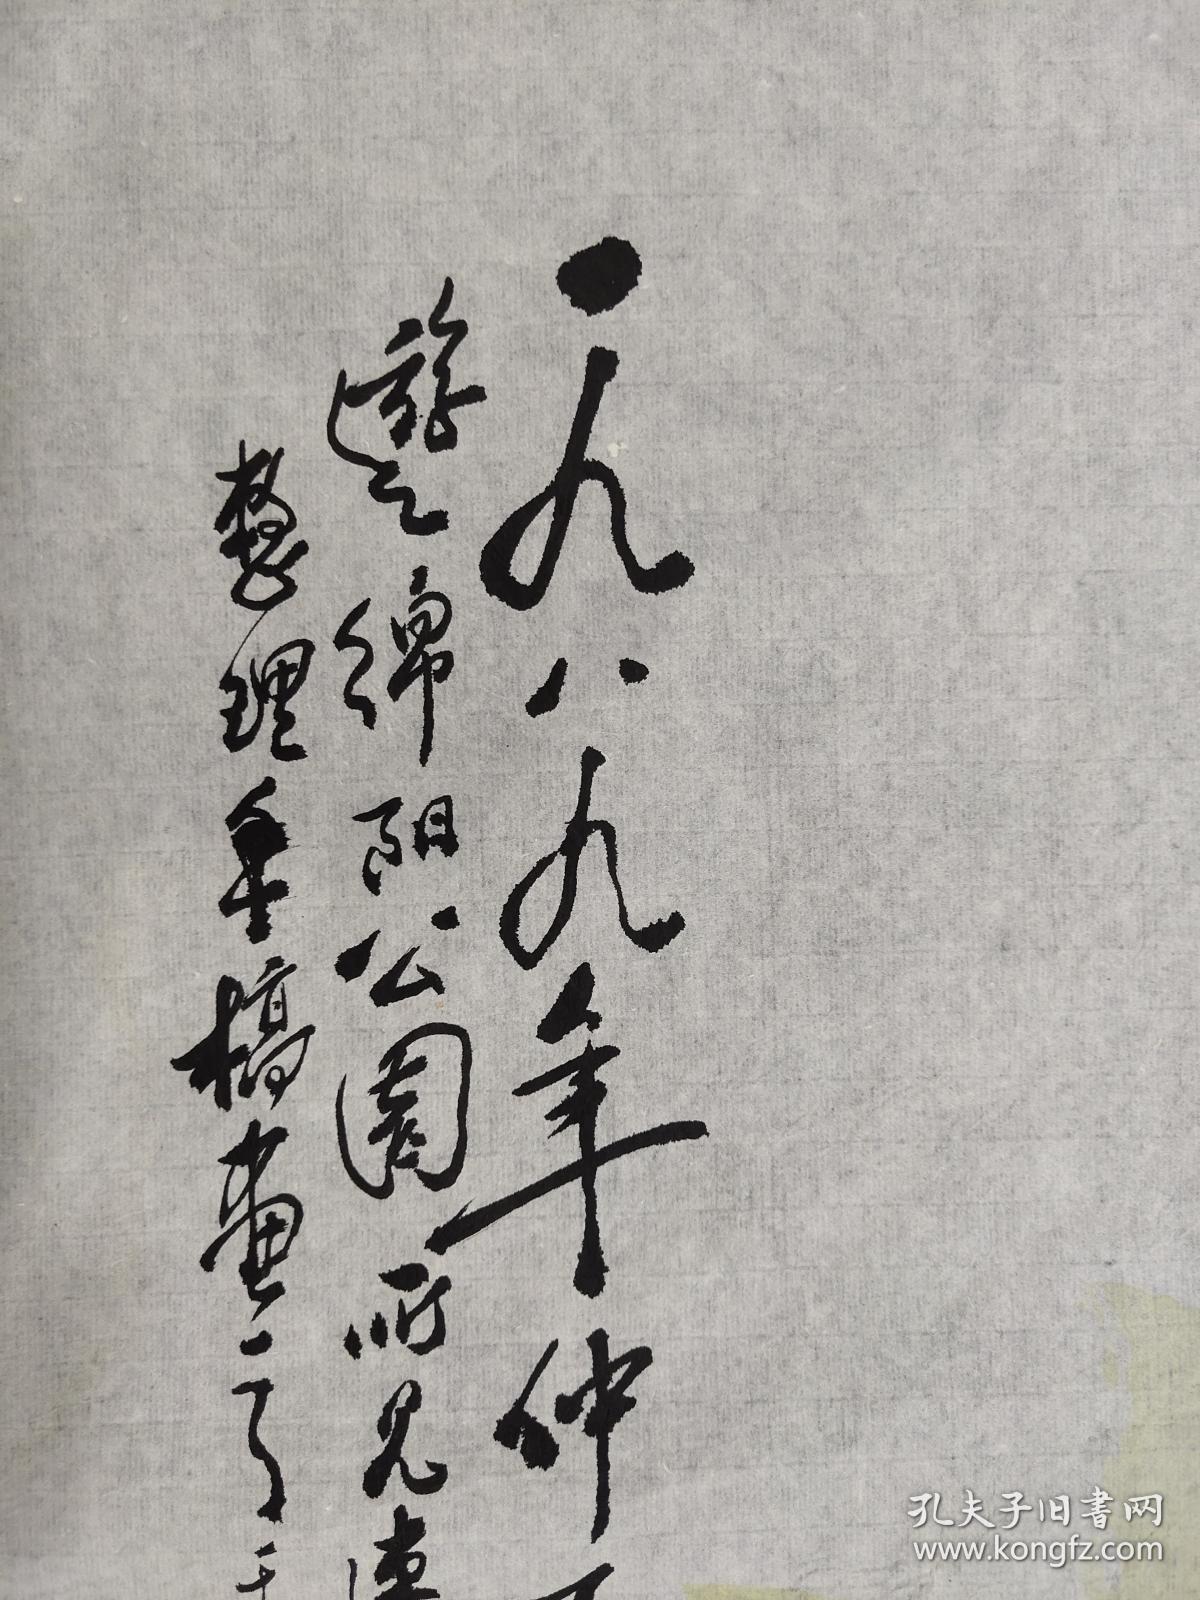 一九八九年仲
遊绵阳公園所见
整理手稿畫
孔夫子旧書网
www.kongfz.com